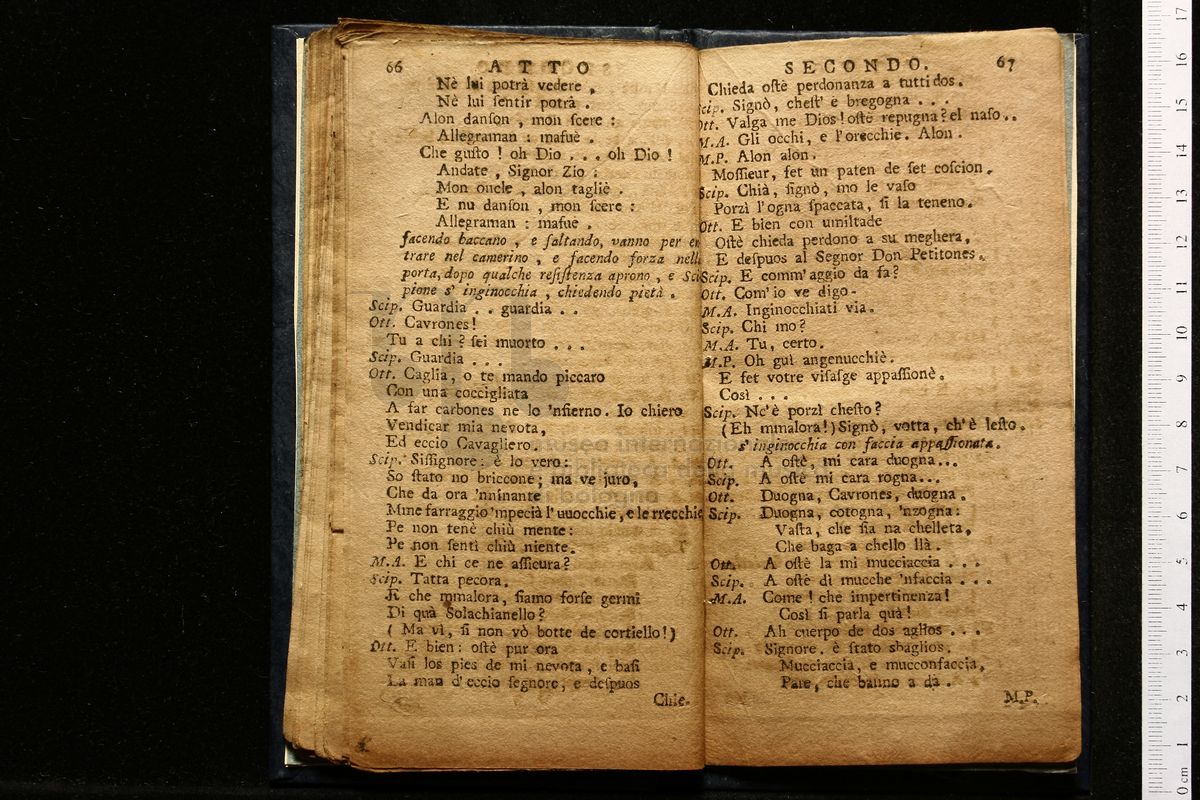 66 ATTO
Nè lui potrà vedere,
Nè lui ſentir potrà.
Alon danſon, mon ſcere:
Allegraman: maſuè.
Che guſto! oh Dio... oh Dio!
Andate, Signor Zio:
Mon oncle, alon tagliè.
E nu danſon, mon ſcere:
Allegraman: maſuè.
facendo baccano, e ſaltando, vanno per en
trare nel camerino, e facendo forza nell
porta, dopo qualche reſiſtenza aprono, e Sci
pione s' inginocchia, chiedendo pietà.
Scip. Guardia.. guardia..
Ott. Cavrones!
Tu a chi? ſei muorto...
Scip. Guardia...
Ott. Caglia, o te mando piccaro
Con una coccigliata
A far carbones ne lo 'nfierno. Io chiero
Vendicar mia nevota,
Ed eccio Cavagliero.
Scip. Siſſignore: è lo vero:
So ſtato no briccone; ma ve juro,
Che da ora 'nninante
Mme farraggio 'mpecià l' uuocchie, e le rrecchie
Pe non tenè chiù mente:
Pe non ſentì chiù niente.
M.A. E chi ce ne aſſicura?
Scip. Tatta pecora.
E che mmalora, ſiamo forſe germi
Di quà Solachianello?
(Ma vì, ſi non vò botte de cortiello!)
Ott. E bien: oſtè pur ora
Vaſi los pies de mi nevota, e baſi
La man d'eccio ſegnore, e deſpuos
Chie-
SECONDO. 67
Chieda oſtè perdonanza a tutti dos.
Scip. Signò, cheſt' è bregogna...
Ott. Valga me Dios! oſtè repugna? el naſo..
M.A. Gli occhi, e l'orecchie. Alon.
M.P. Alon alon.
Moſſieur, fet un paten de ſet coſcion.
Scip. Chià, ſignò, mo le vaſo
Porzì l'ogna ſpaccata, ſi la teneno.
Ott. E bien con umiltade
Oſtè chieda perdono a su meghera,
E deſpuos al Segnor Don Petitones.
Scip. E comm'aggio da fa?
Ott. Com'io ve digo-
M.A. Inginocchiati via.
Scip. Chi mo?
M.A. Tu, certo.
M.P. Oh guì angenucchiè.
E fet votre viſaſge appaſſionè.
Così...
Scip. Nc'è porzì cheſto?
(Eh mmalora!) Signò, votta, ch'è leſto.
s' inginocchia con faccia appaſſionata.
Ott. A oſtè, mi cara duogna...
Scip. A oſtè mi cara rogna...
Ott. Duogna, Cavrones, duogna.
Scip. Duogna, cotogna, 'nzogna:
Vaſta, che ſia na chelleta,
Che baga a chello llà.
Ott. A oſtè la mi mucciaccia...
Scip. A oſtè dì mucche 'nfaccia...
M.A. Come! che impertinenza!
Così ſi parla quà!
Ott. Ah cuerpo de dos aglios...
Scip. Signore, è ſtato sbaglios.
Mucciaccia, e mucconfaccia,
Pare, che banno a dà.
M.P.